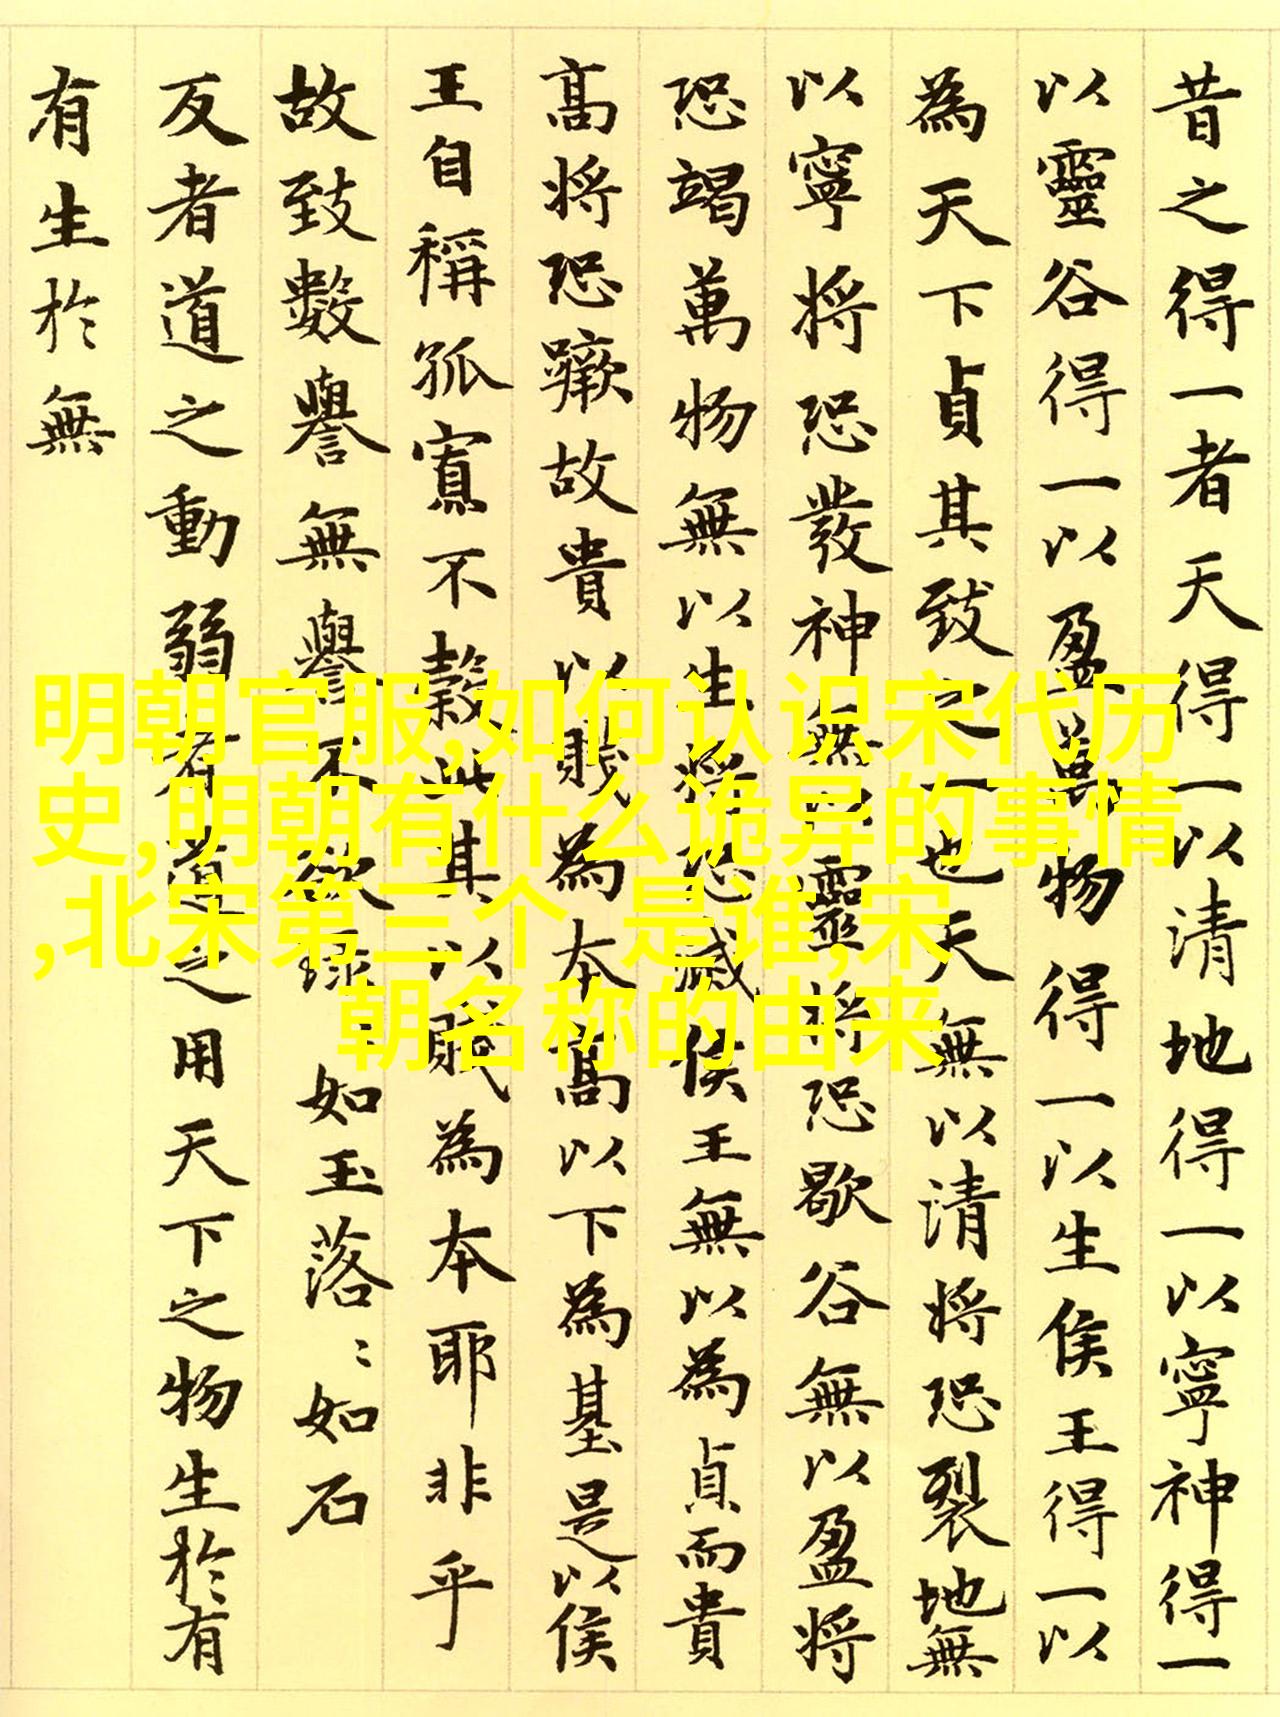 昔之得一者天得一以清地得一以寧神得一
以靈谷得一以盈萬物得一以生侯王得一以
為天下貞其致之一也天無以清將恐裂地無
以寧將恐發神無以靈將恐歇谷無以盈將
恐竭萬物無以生將恐滅侯王無以為貞而貴
高將恐蹶故貴以賤為本高以下為基是以侯
王自稱孤寡不穀此其以賤為本耶非乎
故致數譽無譽不欲琭〻如玉落〻如石
反者道之動弱者道之用天下之物生於有
有生於無
明朝官服,如何认识宋代历
史,明朝有什么诡异的事情
,北宋第三个 是谁,宋
朝名称的由来